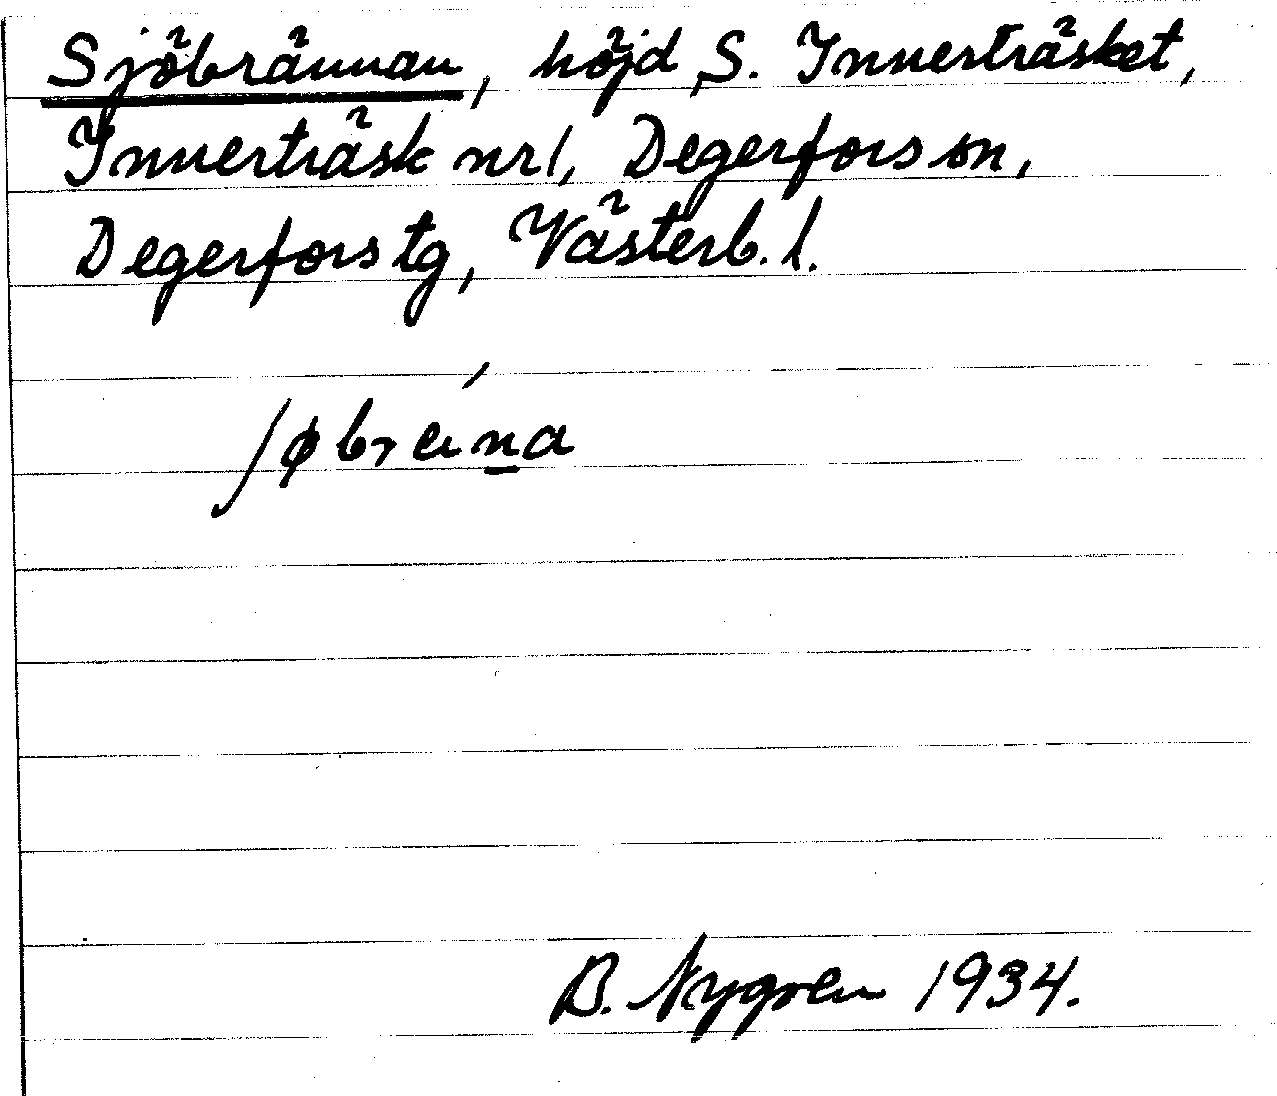 Sjöbrännan, höjd, S. Innerträsket,
Innerträsk nr 1, Degerfors sn,
Degerfors tg, Västerb. l.
ʃøbrei̯na
B. Nygren 1934.